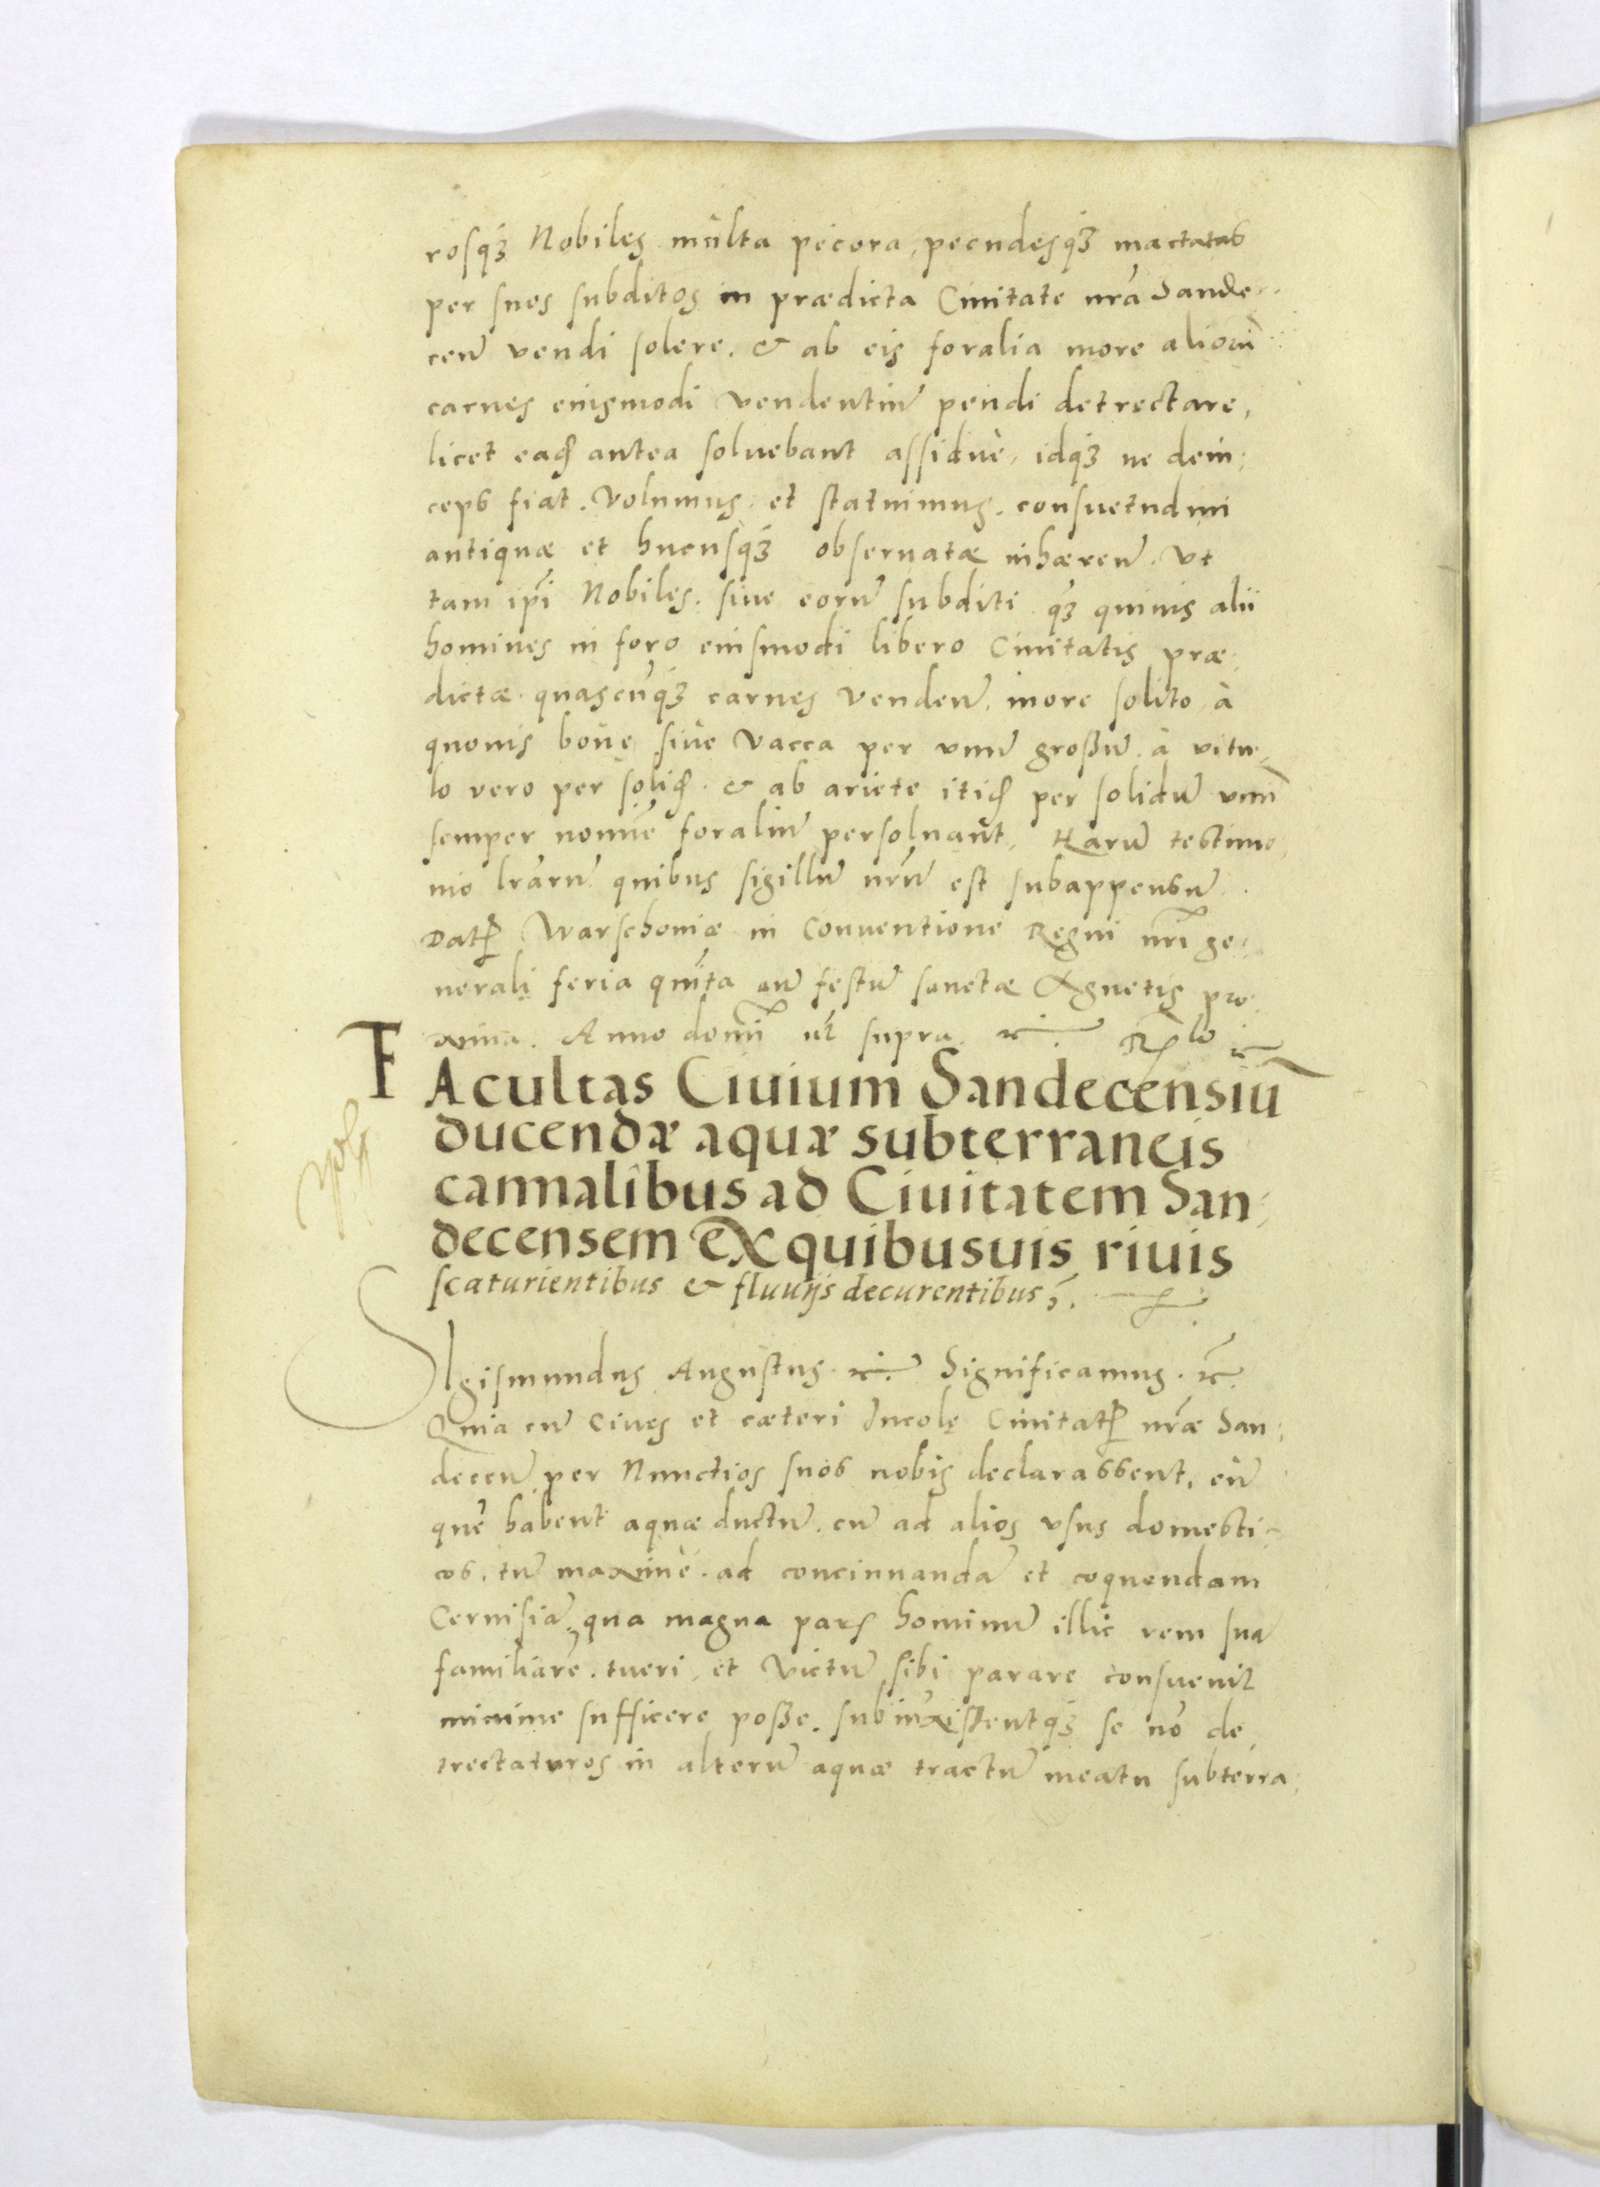 rosq3 Nobiles multa pecora, pecudesq3 mactatas
per suos subditos in prædicta Ciuitate nrã Sande-
ceñ vendi solere. & ab eis foralia more alioru̅
carnes eiusmodi vendentiu̅ pendi detrectare,
licet eaq̃ antea soluebant assiduè, idq3 ne dein:
ceps fiat. Volumus et statuimus. consuetudini
antiquæ et hucusq3 obseruatæ inhæreñ. Vt
tam ip̃i Nobiles. siue eoru̅ subditi q3 quiuis alii
homines in foro eiusmodi libero Ciuitatis præ:
dictæ. quascu̅q3 carnes vendeñ. more solito à
quouis boue siue vacca per vnu̅ großu̅. à vitu-
lo vero per soliđ. & ab ariete itiđ per solidu̅ vnu̅
semper noi̅ne foraliu̅ persoluant, Haru̅ testimo
nio lr̃aru̅ quibus sigillu̅ nr̃u̅ est subappensu̅.
Dat̃ Warschoviæ in Conuentione Regni nr̃i ge:
nerali feria qui̅ta an̅ festu̅ sanctæ Agnetis pro
xima. Anno domi̅ ut supra. &c. R̃lo &c
FAcultas Ciuium Sandecensiu̅
ducendæ aquæ subterraneis
cannalibus ad Ciuitatem San:
decensem ex quibusuis riuis
scaturientibus & fluuijs decurentibus.
SIgismundus Augustus. &c. Significamus. &c.
Quia cu̅ Ciues et cæteri Incolę Ciuitat̃ nr̃æ San:
deceñ per Nunctios suos nobis declarassent, eu̅
que̅ habent aquæ ductu̅. cu̅ ad alios vsus domesti-
cos. tu̅ maximè. ad concinnanda̅ et coquendam
Ceruisia̅, qua magna pars hominu̅ illic rem sua̅
familiare̅. tueri, et victu̅ sibi parare consueuit
minime sufficere poße. subinxißentq3 se no̅ de,
trectaturos in alteru̅ aquæ tractu̅ meatu subterra: